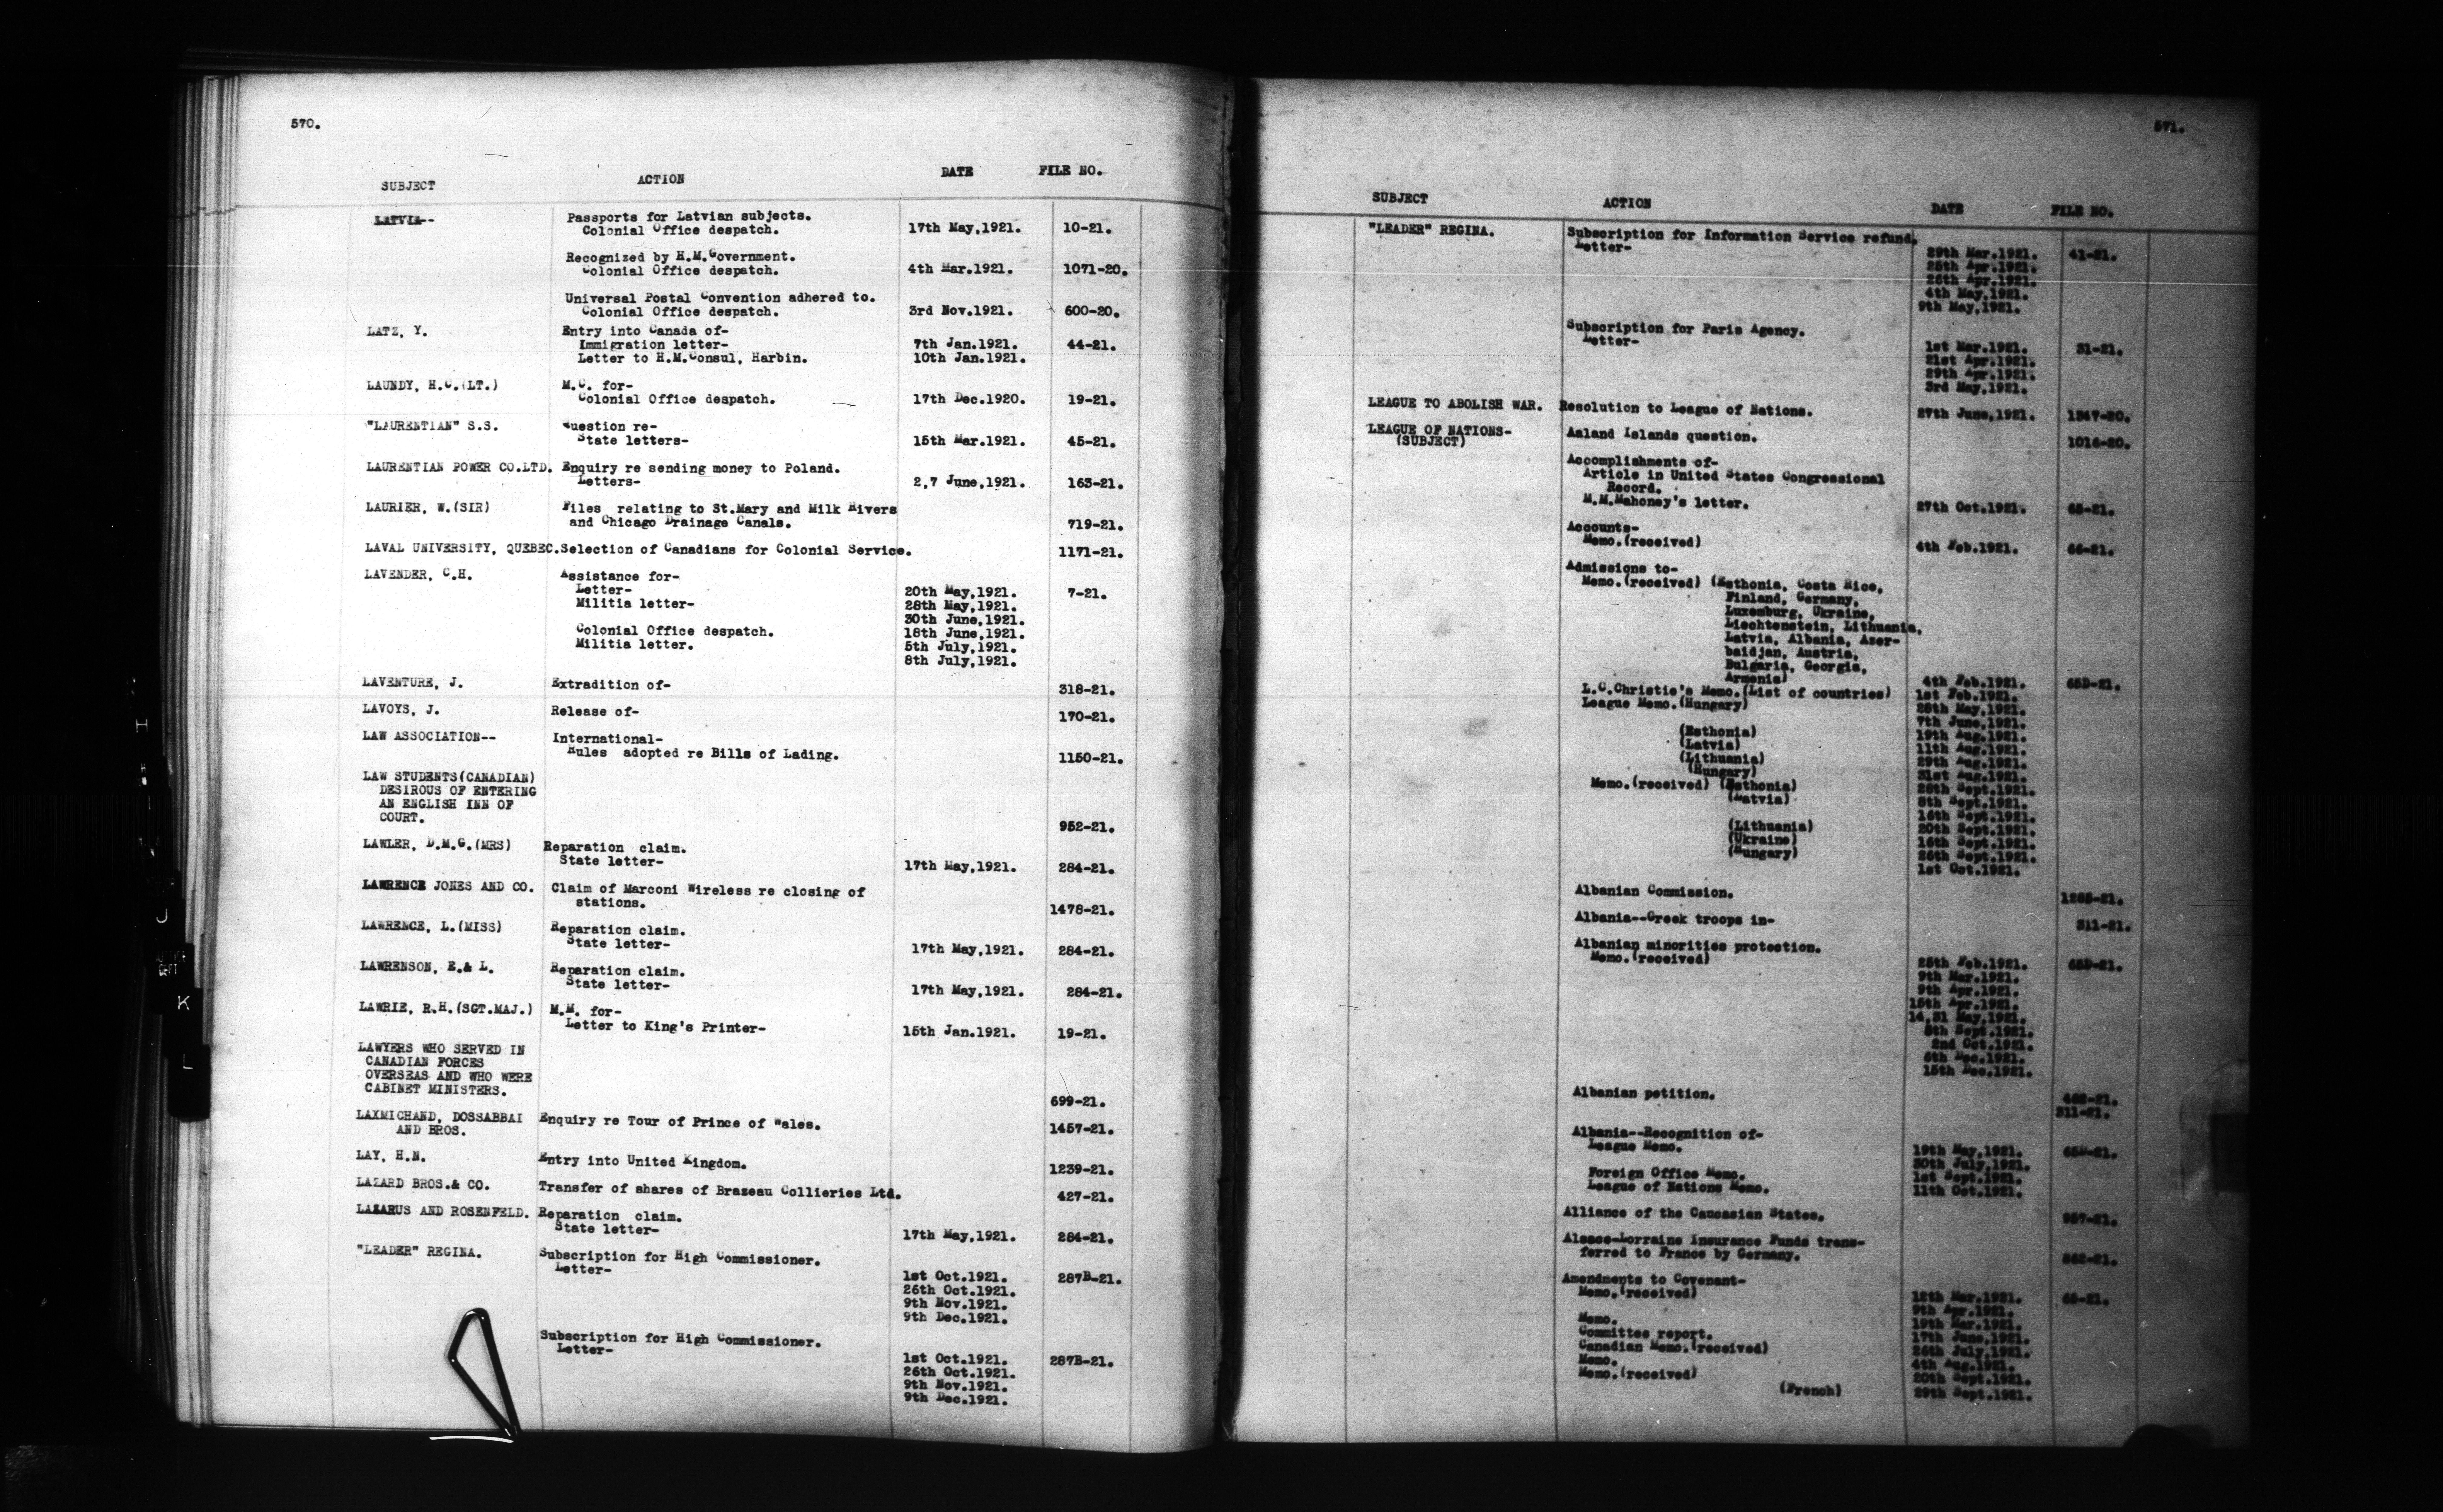 570.
SUBJECT ACTION DATE FILE NO.
LATVIA-- Passports for Latvian subjects.
Colonial Office despatch. 17th May,1921. 10-21.
Recognized by H.M.Government.
Colonial Office despatch. 4th Mar.1921. 1071-20.
Universal Postal Convention adhered to.
Colonial Office despatch. 3rd Nov.1921. 600-20.
LATZ, Y. Entry into Canada of-
Immigration letter- 7th Jan.1921. 44-21.
Letter to H.M.Consul, Harbin. 10th Jan.1921.
LAUNDY, H.C.(LT.) M.C. for-
Colonial Office despatch. 17th Dec.1920. 19-21.
"LAURENTIAN" S.S. Question re-
State letters- 15th Mar.1921. 45-21.
LAURENTIAN POWER CO.LTD. Enquiry re sending money to Poland.
Letters- 2,7 June,1921. 163-21.
LAURIER, W.(SIR) Files relating to St.Mary and Milk Rivers
and Chicago Drainage Canals. 719-21.
LAVAL UNIVERSITY, QUEBEC. Selection of Canadians for Colonial Service. 1171-21.
LAVENDER, C.H. Assistance for-
Letter- 20th May,1921. 7-21.
Militia letter- 28th May,1921.
30th June,1921.
Colonial Office despatch. 18th June,1921.
Militia letter. 5th July,1921.
8th July,1921.
LAVENTURE, J. Extradition of- 318-21.
LAVOYS, J. Release of- 170-21.
LAW ASSOCIATION-- International-
Rules adopted re Bills of Lading. 1150-21.
LAW STUDENTS(CANADIAN)
DESIROUS OF ENTERING
AN ENGLISH INN OF
COURT. 952-21.
LAWLER, D.M.G.(MRS) Reparation claim.
State letter- 17th May,1921. 284-21.
LAWRENCE JONES AND CO. Claim of Marconi Wireless re closing of
stations. 1478-21.
LAWRENCE, L.(MISS) Reparation claim.
State letter- 17th May,1921. 284-21.
LAWRENSON, E.& L. Reparation claim.
State letter- 17th May,1921. 284-21.
LAWRIE, R.H.(SGT.MAJ.) M.M. for-
Letter to King's Printer- 15th Jan.1921. 19-21.
LAWYERS WHO SERVED IN
CANADIAN FORCES
OVERSEAS AND WHO WERE
CABINET MINISTERS. 699-21.
LAXMICHAND, DOSSABBAI Enquiry re Tour of Prince of Wales.
AND BROS. 1457-21.
LAY, H.N. Entry into United Kingdom. 1239-21.
LAZARD BROS.& CO. Transfer of shares of Brazeau Collieries Ltd. 427-21.
LAZARUS AND ROSENFELD. Reparation claim.
State letter- 17th May,1921. 284-21.
"LEADER" REGINA. Subscription for High Commissioner.
Letter- 1st Oct.1921. 287B-21.
26th Oct.1921.
9th Nov.1921.
9th Dec.1921.
Subscription for High Commissioner.
Letter- 1st Oct.1921. 287B-21.
26th Oct.1921.
9th Nov.1921.
9th Dec.1921.
J
K
L
571.
SUBJECT ACTION DATE FILE NO.
"LEADER" REGINA. Subscription for Information Service refund.
Letter- 29th Mar.1921. 41-21.
25th Apr.1921.
26th Apr.1921.
4th May,1921.
9th May,1921.
Subscription for Paris Agency.
Letter- 1st Mar.1921. 31-21.
21st Apr.1921.
29th Apr.1921.
3rd May,1921.
LEAGUE TO ABOLISH WAR. Resolution to League of Nations. 27th June,1921. 1347-20.
LEAGUE OF NATIONS-
(SUBJECT) Aaland Islands question. 1016-20.
Accomplishments of-
Article in United States Congressional
Record.
M.M.Mahoney's letter. 27th Oct.1921. 65-21.
Accounts-
Memo.(received) 4th Feb.1921. 66-21.
Admissions to-
Memo.(received) (Esthonia, Costa Rica,
Finland, Germany,
Luxemburg, Ukraine,
Liechtenstein, Lithuania,
Latvia, Albania, Azer-
baidjan, Austria,
Bulgaria, Georgia,
Armenia) 4th Feb.1921. 65D-21.
L.C.Christie's Memo.(List of countries) 1st Feb.1921.
League Memo.(Hungary) 28th May,1921.
7th June,1921.
(Esthonia) 19th Aug.1921.
(Latvia) 11th Aug.1921.
(Lithuania) 29th Aug.1921.
(Hungary) 31st Aug.1921.
Memo.(received) (Esthonia) 28th Sept.1921.
(Latvia) 8th Sept.1921.
16th Sept.1921.
(Lithuania) 20th Sept.1921.
(Ukraine) 16th Sept.1921.
(Hungary) 26th Sept.1921.
1st Oct.1921.
Albanian Commission. 1265-21.
Albania--Greek troops in- 311-21.
Albanian minorities protection.
Memo.(received) 25th Feb.1921. 65D-21.
9th Mar.1921.
9th Apr.1921.
15th Apr.1921.
14,31 May,1921.
8th Sept.1921.
2nd Oct.1921.
6th Dec.1921.
15th Dec.1921.
Albanian petition.
311-21.
Albania--Recognition of-
League Memo. 19th May,1921. 65D-21.
30th July,1921.
Foreign Office Memo. 1st Sept.1921.
League of Nations Memo. 11th Oct.1921.
Alliance of the Caucasian States. 987-21.
Alsace-Lorraine Insurance Funds trans-
ferred to France by Germany.
Amendments to Covenant-
Memo.(received) 12th Mar.1921. 65-21.
9th Apr.1921.
Memo. 19th Mar.1921.
Committee report. 17th June,1921.
Canadian Memo.(received) 26th July,1921.
Memo. 4th Aug.1921.
Memo.(received) 20th Sept.1921.
(French) 29th Sept.1921.